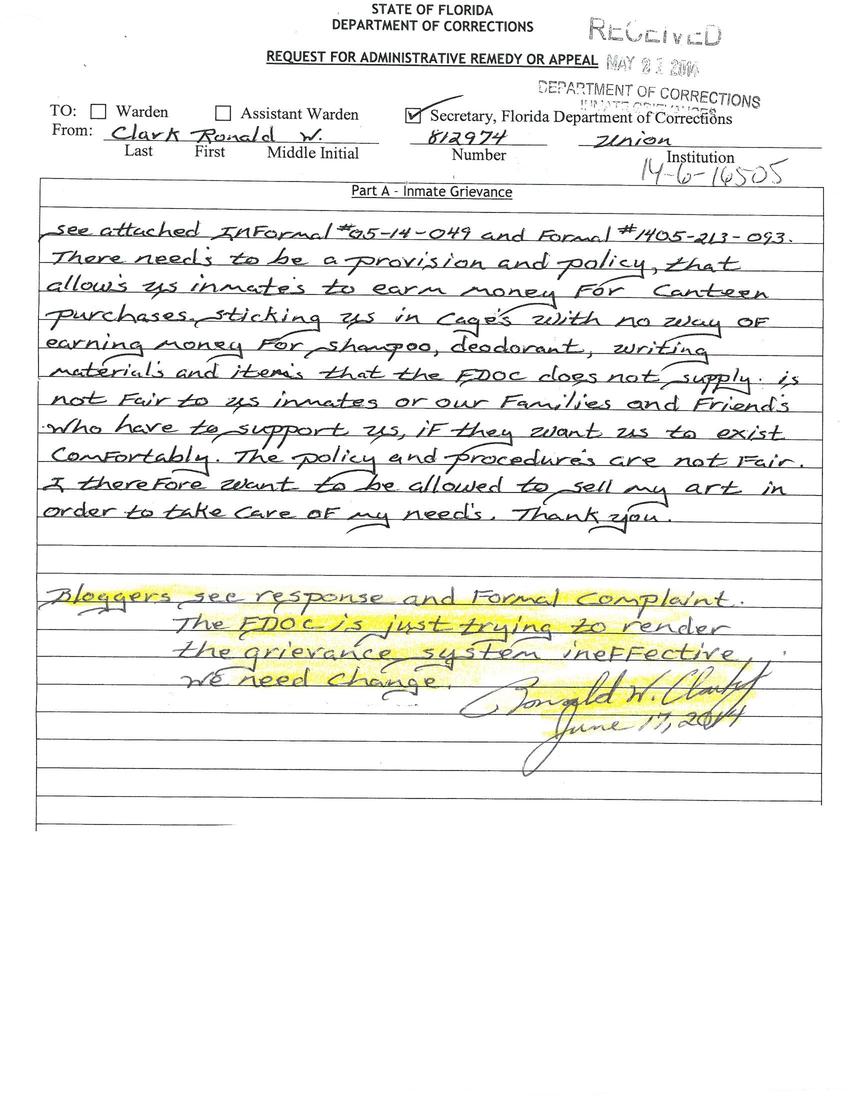 STATE OF FLORIDA
DEPARTMENT OF CORRECTIONS
RECEIVED
REQUEST FOR ADMINISTRATIVE REMEDY OR APPEAL
MAY 2014
DEPARTMENT OF CORRECTIONS
INMATE GRIEVANCES
TO: Warden Assistant Warden Secretary, Florida Department of Corrections
From: Clark Ronald W. 812974 Union
Last First Middle Initial Number Institution
14-6-16505
Part A - Inmate Grievance
see attached INFormal #05-14-049 and Formal #1405-213-093.
There need's to be a provision and policy, that
allow's us inmate's to earm money For Canteen
purchases. sticking us in Cage's with no way OF
earning money For shampoo, deodorant, writing
material's and item's that the FDOC does not supply. is
not Fair to us inmates or our Families and Friend's
who have to support us, iF they want us to exist
ComFortably. The policy and procedure's are not Fair.
I thereFore want to be allowed to sell my art in
order to take care OF my need's. Thank you.
Bloggers see response and Formal Complaint.
The FDOC is just trying to render
the grievance system ineFFective,
we need change.
Ronald W. Clark Jr
June 17, 2014